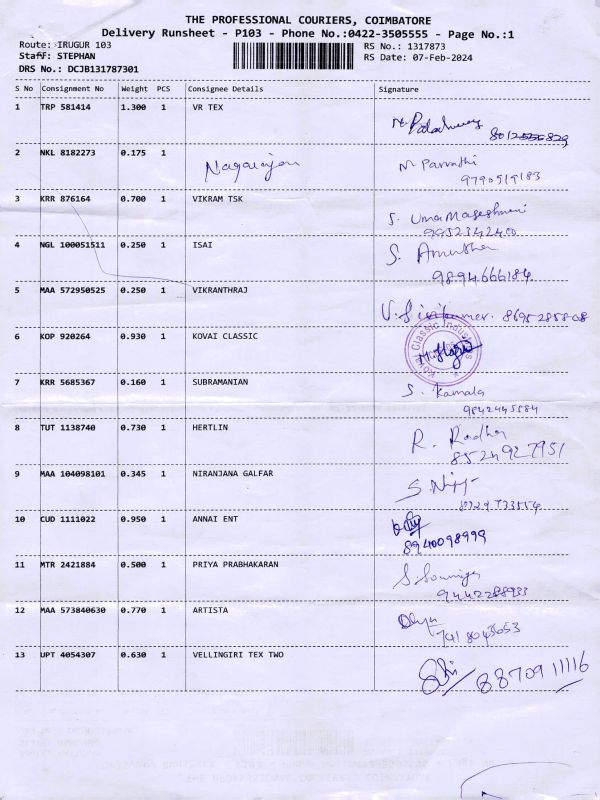 THE PROFESSIONAL COURIERS, COIMBATORE
Delivery Runsheet - P103 - Phone No.:0422-3505555 - Page No.:1
Route: IRUGUR 103 RS No.: 1317873
Staff: STEPHAN RS Date: 07-Feb-2024
DRS No.: DCJB131787301
S No Consignment No Weight PCS Consignee Details Signature
1 TRP 581414 1.300 1 VR TEX
2 NKL 8182273 0.175 1 Nagarajan M Parvathi
9790519183
3 KRR 876164 0.700 1 VIKRAM TSK S. Uma Mageshwari
9952342400
4 NGL 100051511 0.250 1 ISAI S. Amutha
9894666184
5 MAA 572950525 0.250 1 VIKRANTHRAJ
6 KOP 920264 0.930 1 KOVAI CLASSIC Kovai Classic Industries
7 KRR 5685367 0.160 1 SUBRAMANIAN S. Kamala
9842445584
8 TUT 1138740 0.730 1 HERTLIN R. Radha
8524927951
9 MAA 104098101 0.345 1 NIRANJANA GALFAR
8929733554
10 CUD 1111022 0.950 1 ANNAI ENT
8940098999
11 MTR 2421884 0.500 1 PRIYA PRABHAKARAN S. Sowmiya
12 MAA 573840630 0.770 1 ARTISTA
7418043653
13 UPT 4054307 0.630 1 VELLINGIRI TEX TWO
8870911116